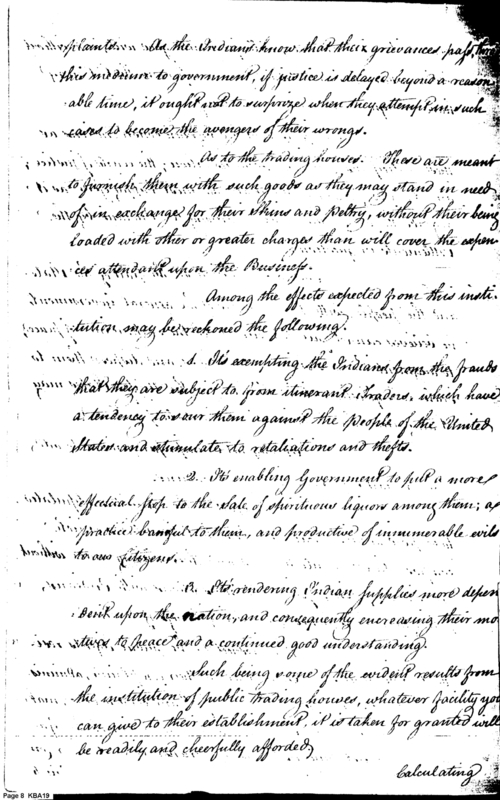 complaints. As the Indians know that their grievances pass, thro
this medium to government, if justice is delayed beyond a reason
able time, it ought not to surprize when they attempt in such
cases to become the avengers of their wrongs.
As to the trading houses. These are meant
to furnish them with such goods as they may stand in need
of in exchange for their skins and peltry, without their being
loaded with other or greater charges than will cover the expen-
ces attendant upon the Business.
Among the effects expected from this insti-
tution may be reckoned the following.
1. It's exempting the Indians from the frauds
that they are subject to from itinerant Traders, which have
a tendency to sour them against the people of the United
States and stimulate to retaliations and thefts.
2. It's enabling Government to put a more
effectual stop to the sale of spirituous liquors among them; a
practice baneful to them, and productive of innumerable evils
to our Citizens.
3. It's rendering Indian supplies more depen
dent upon the nation, and consequently encreasing their mo
tives to peace and a continued good understanding.
Such being some of the evident results from
the institution of public trading houses, whatever facility you
can give to their establishment, it is taken for granted will
be readily and cheerfully afforded
Calculating
Page 8 KBA19